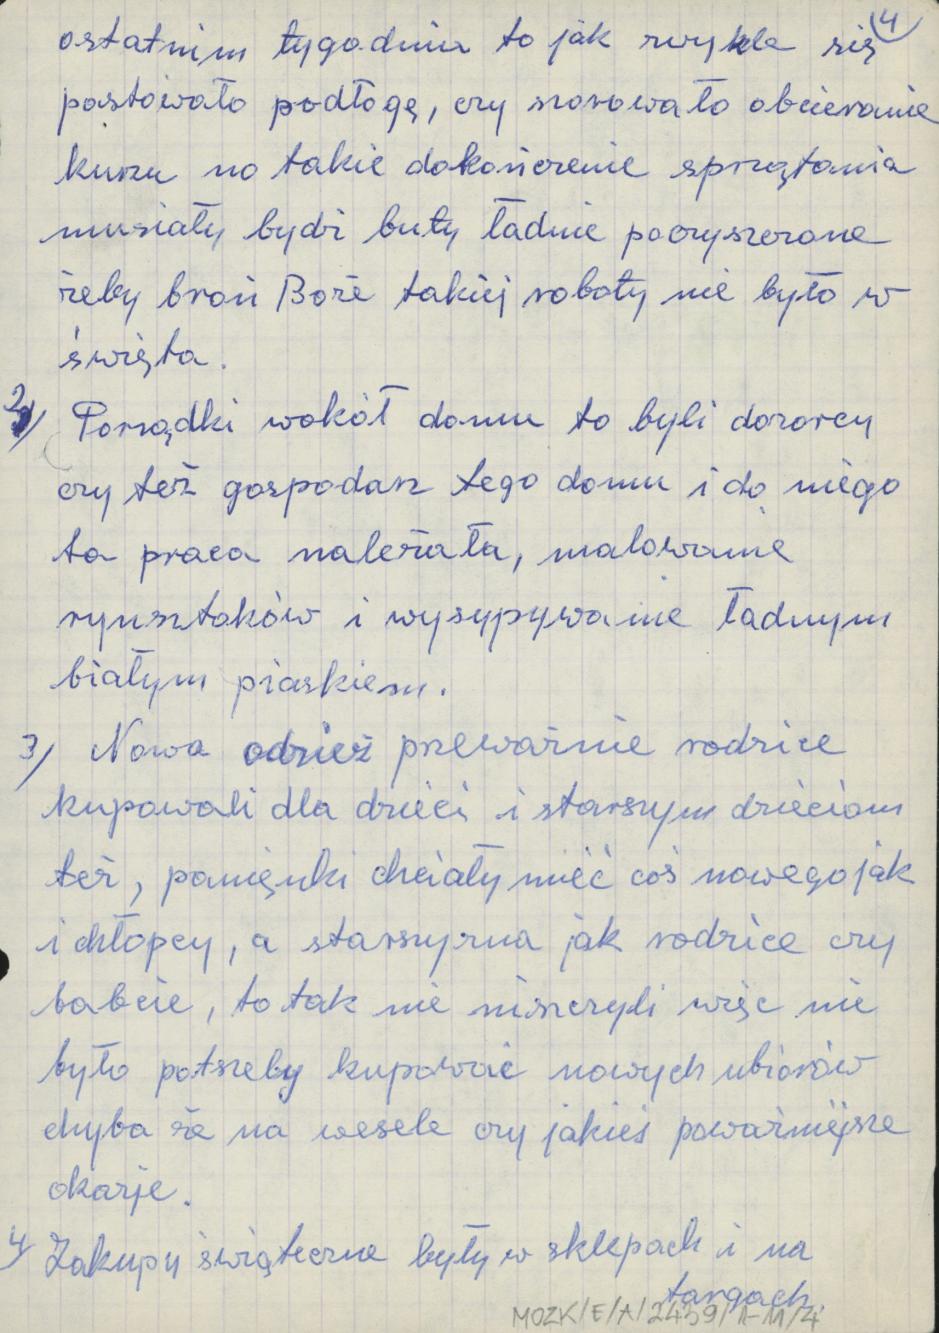 4
ostatnim tygodniu to jak zwykle się
pastowało podłogę, czy szorowało obcieranie
kurzu no takie dokończenie sprzątania
musiały bydź buty ładnie poczyszczone
żeby broń Boże takiej roboty nie było w
święta.
2/ Porządki wokół domu to byli dozorcy
czy też gospodarz tego domu i do niego
ta praca należała, malowanie
rynsztoków i wysypywanie ładnym
białym piaskiem.
3/ Nowa odzież przeważnie rodzice
kupowali dla dzieci i starszym dzieciom
też, panienki chciały mieć coś nowego jak
i chłopcy, a starszyzna jak rodzice czy
babcie, to tak nie niszczyli więc nie
było potrzeby kupować nowych ubiorów
chyba że na wesele czy jakieś poważniejsze
okazje.
4/ Zakupy świąteczne były w sklepach i na
targach.
MOZK/E/A/2459/1-11/4